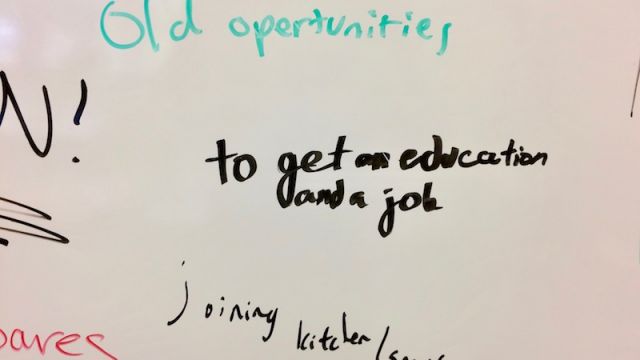 Old opertunities
N!
to get an education
and a job
joining kitchen/